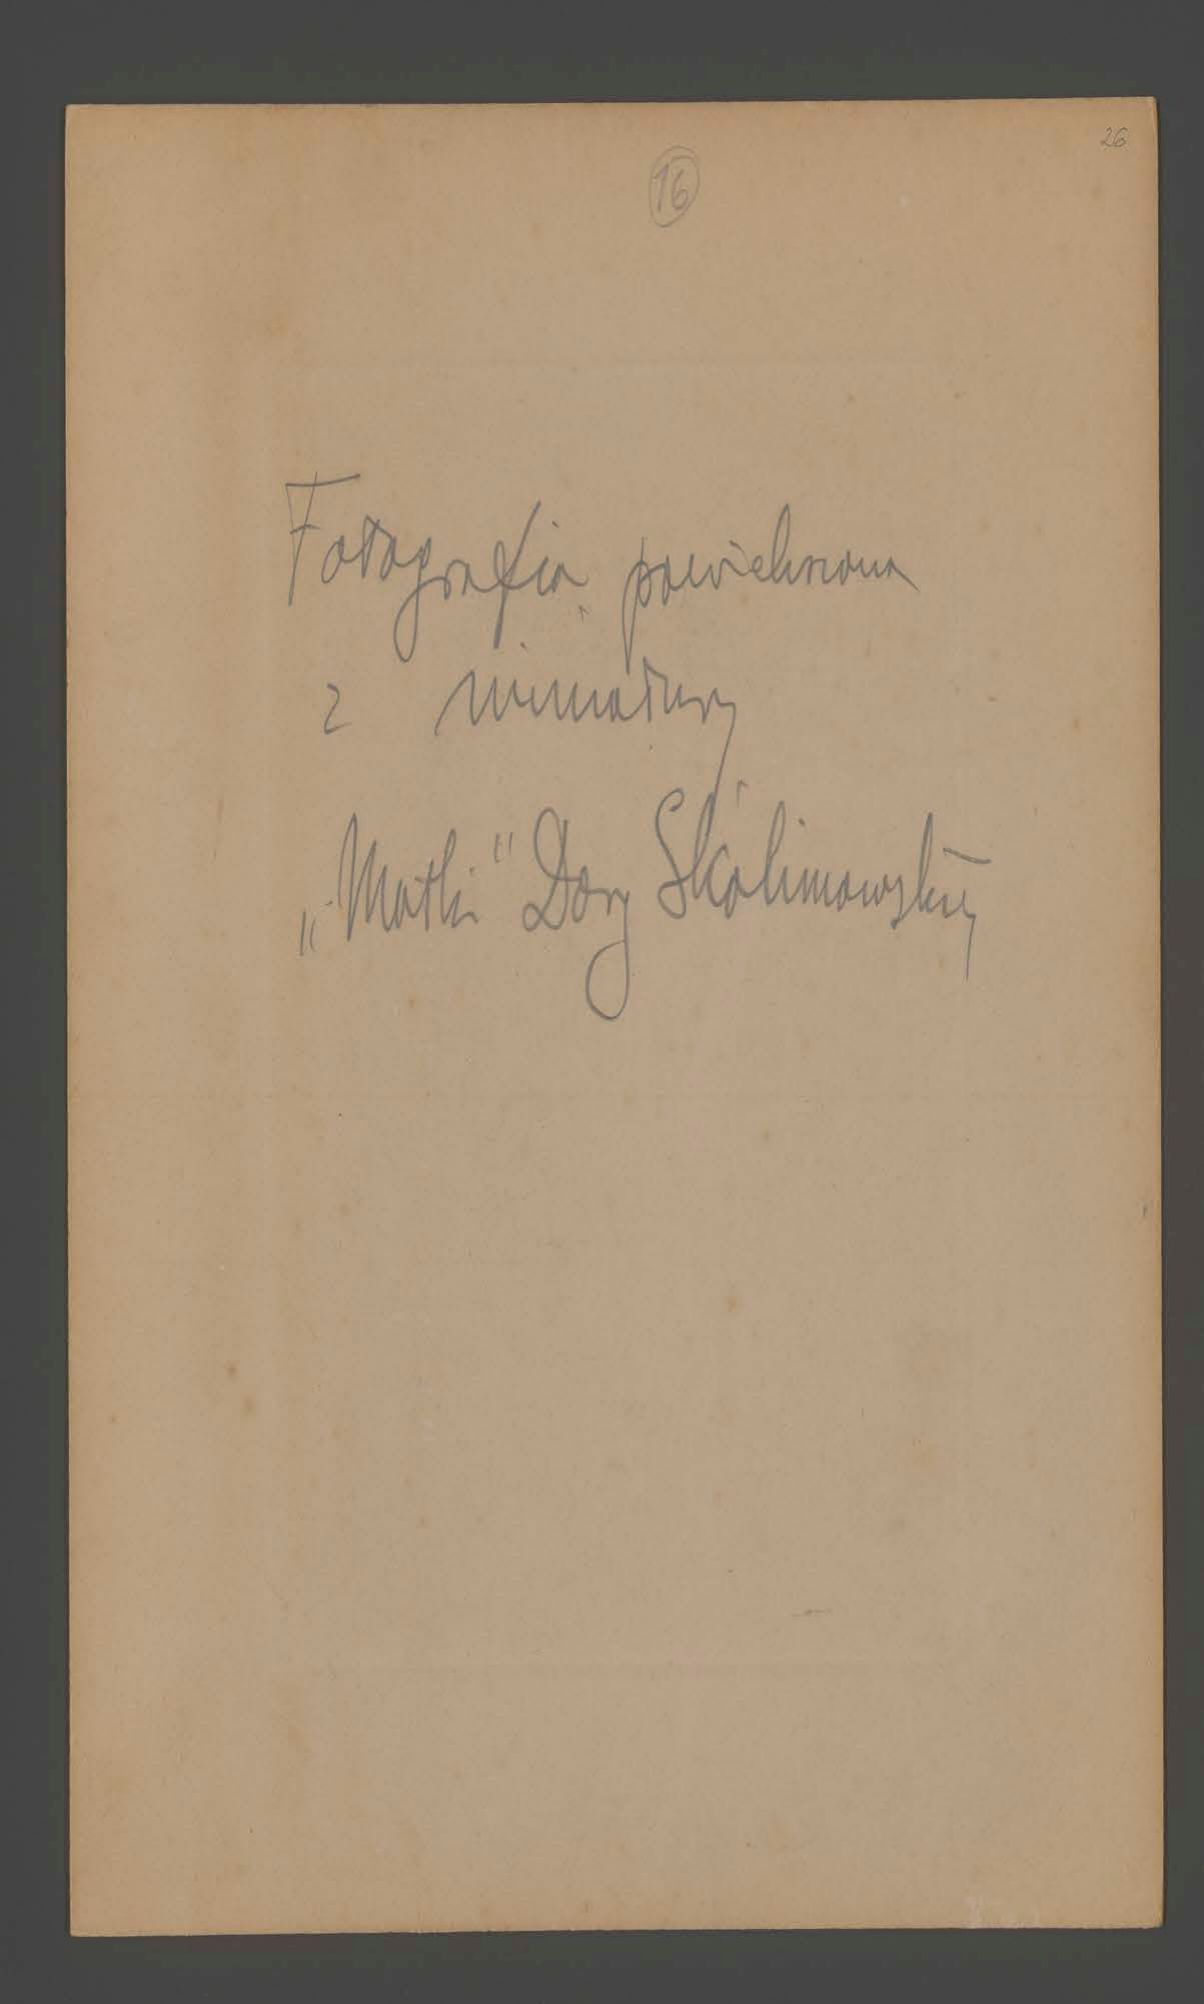 26
16
Fotografia powiekszona
z miniatury
„Matki" Dory Skolimowskiej